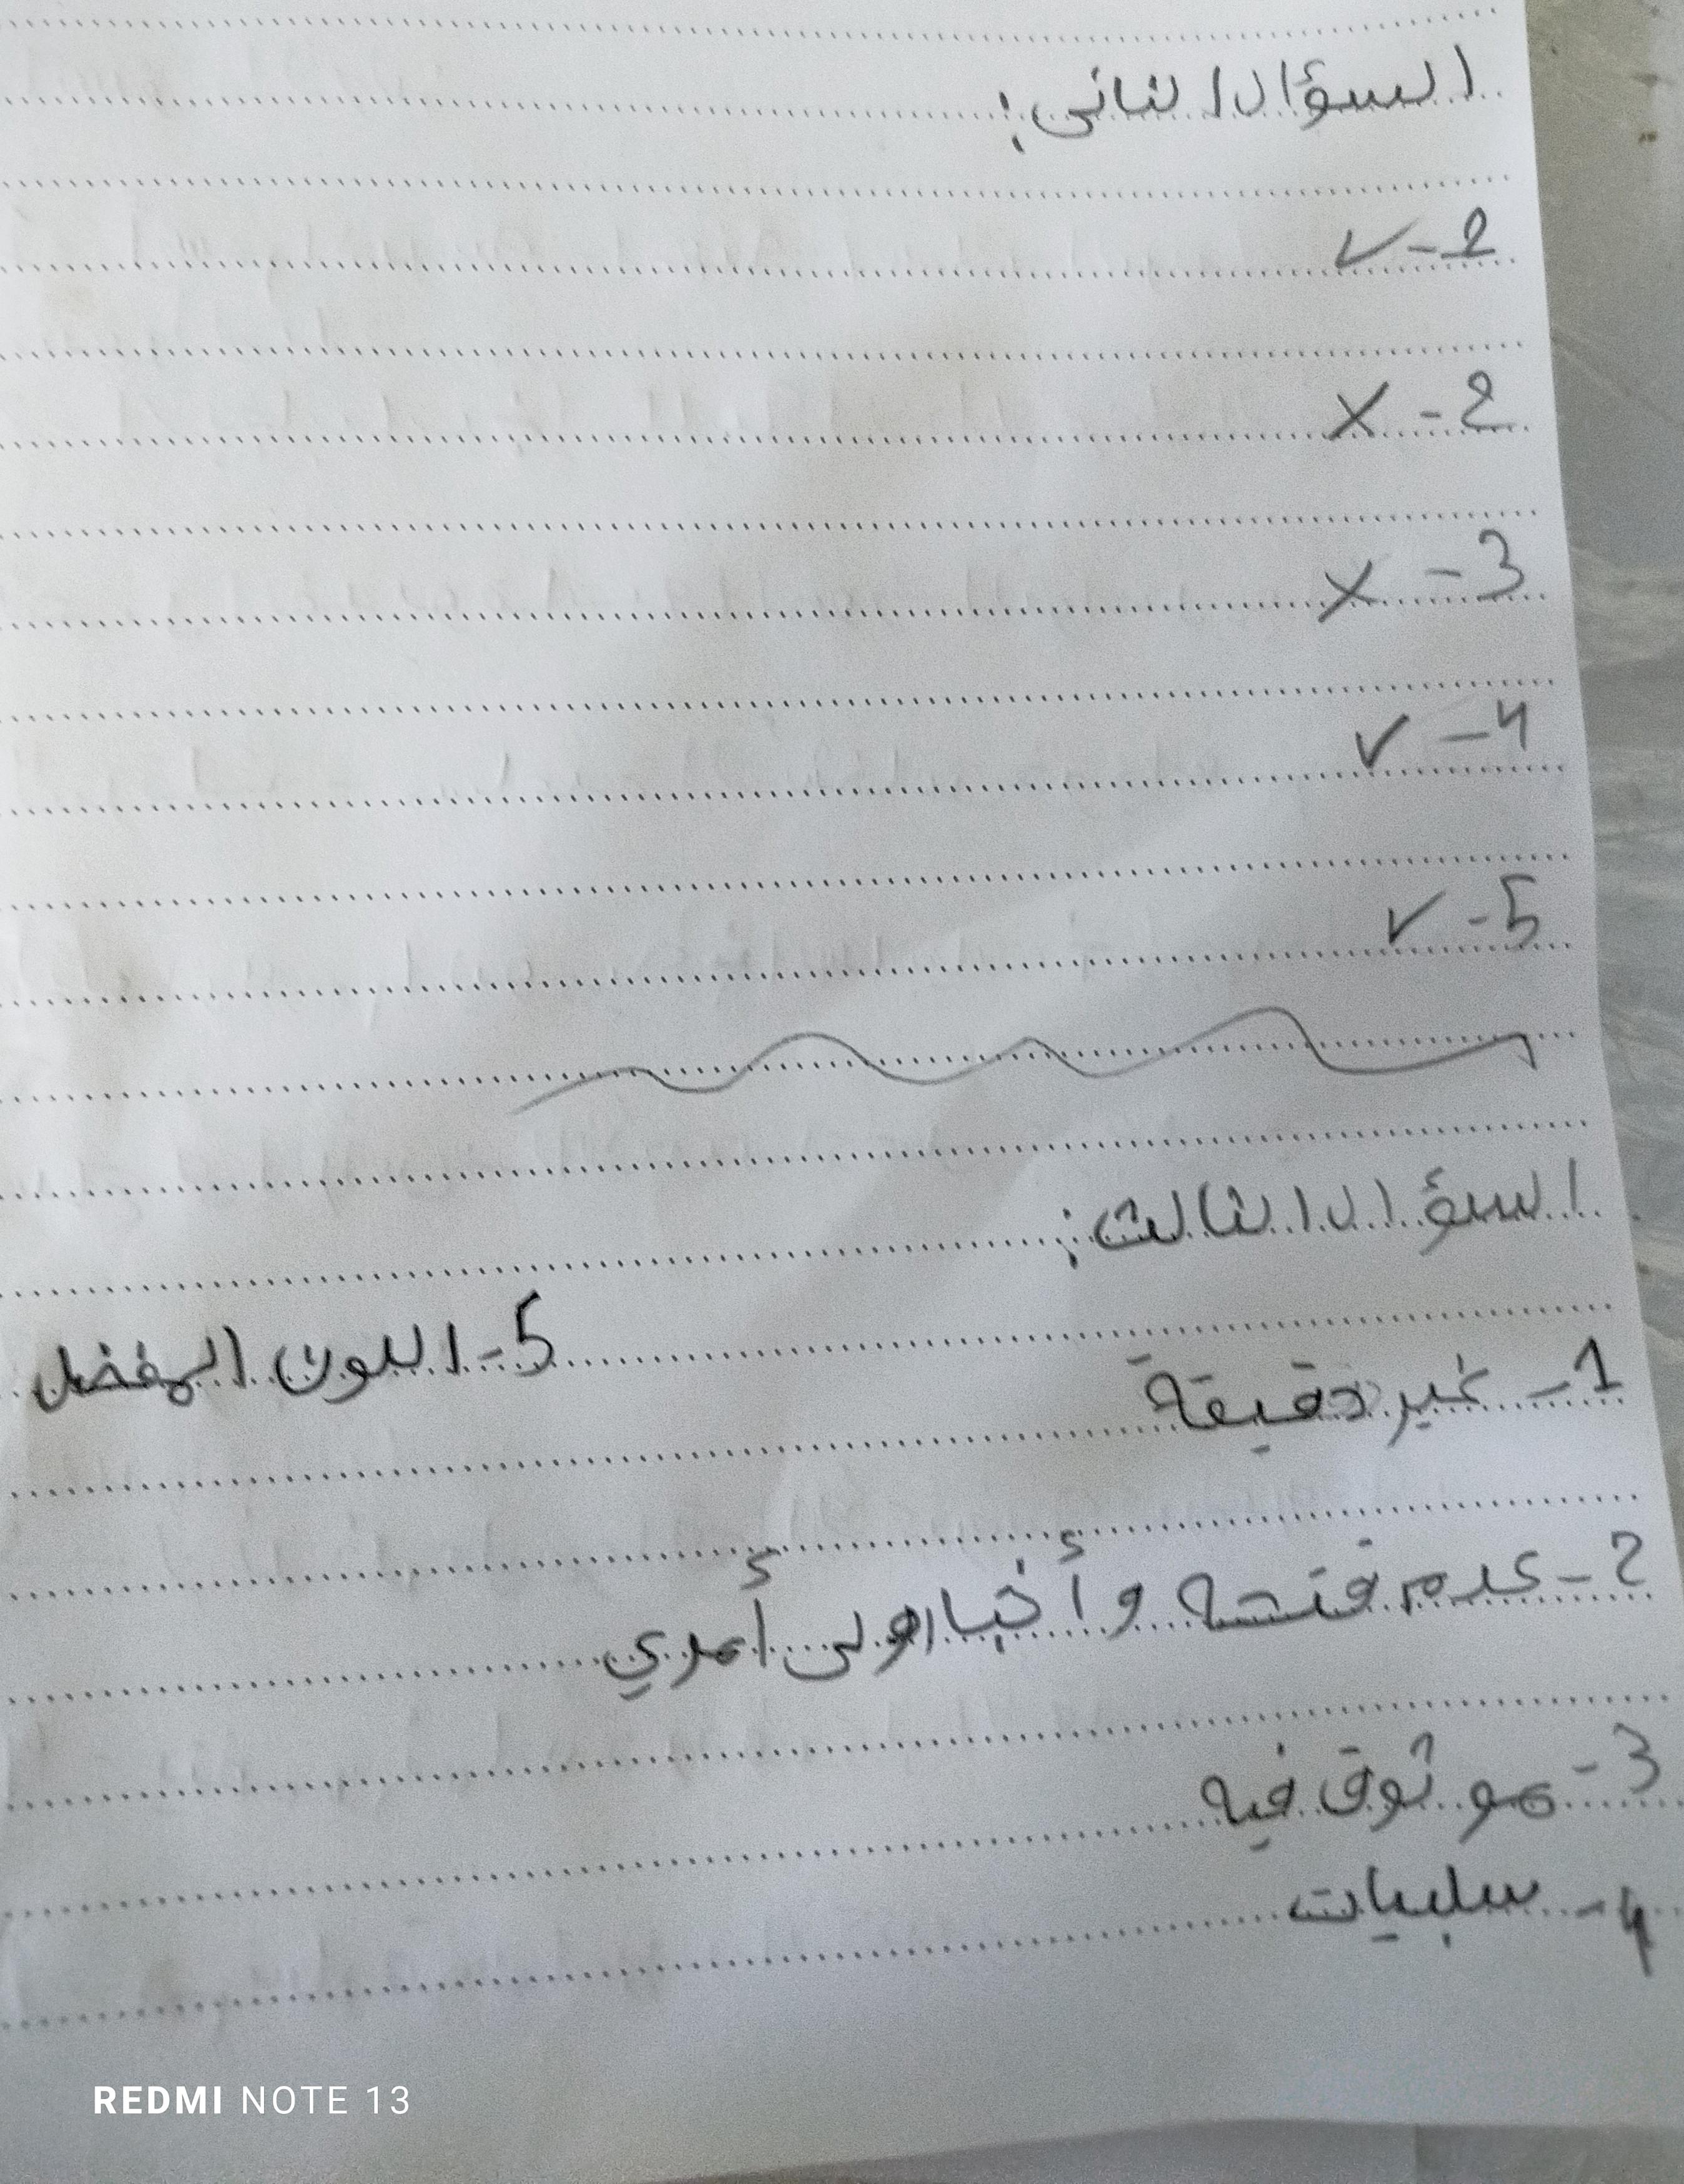 السؤال الثاني:
1- ✓
2- X
3- X
4- ✓
5- ✓
السؤال الثالث:
1- غير دقيقة
2- عدم فتحه وأخبار ولى أمري
3- موثوق فيه
4- سلبيات
5- اللون المفضل
REDMI NOTE 13